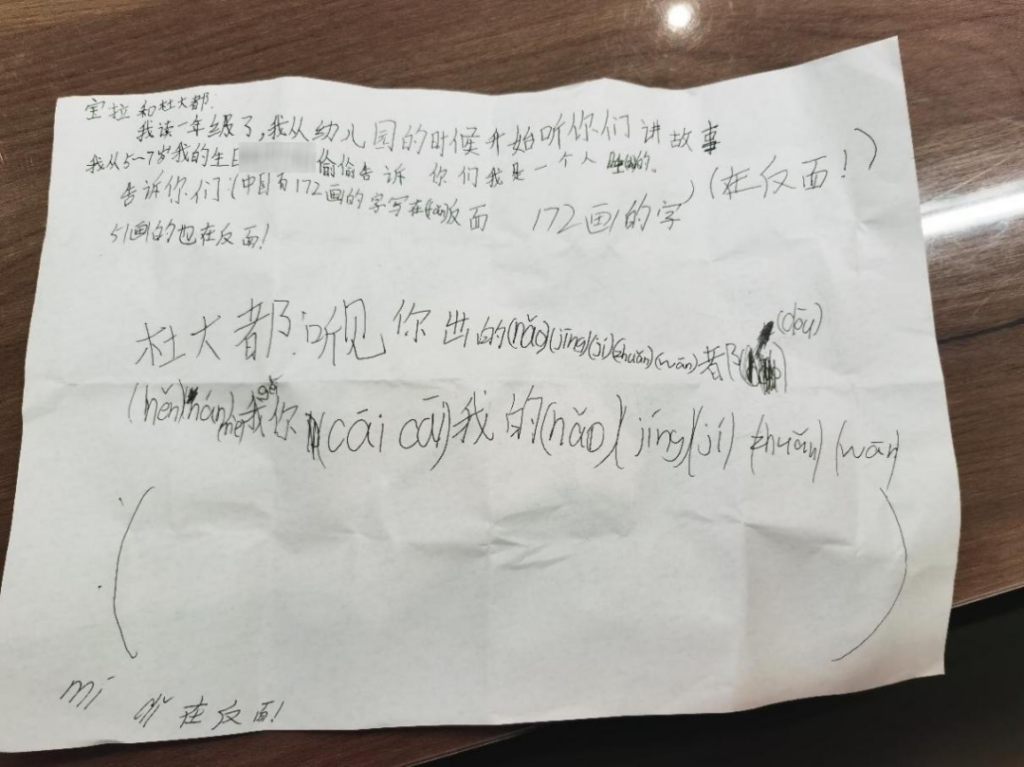 宝拉和杜大都:
我读一年级了,我从幼儿园的时候开始听你们讲故事
我从5-7岁我的生日 偷偷告诉 你们我是一个人
告诉你们(中国有172画的字写在反面 172画的字)(在反面!)
51画的也在反面!
杜大都:听见你出的(nǎo)(jīng)(jí)(zhuǎn)(wān)都(dōu)
(hěn)(nán) 我你(cāi cāi)我的(nǎo)(jíng)(jí)(zhuǎn)(wān)
( )
mí dǐ 在反面!